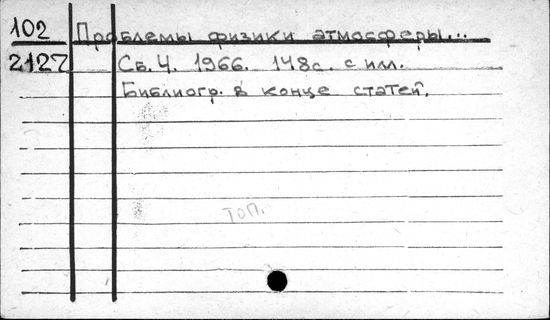 102 Проблемы физики атмосферы...
2127 Сб. 4. 1966. 148с. с илл.
Библиогр. в конце статей.
топ.